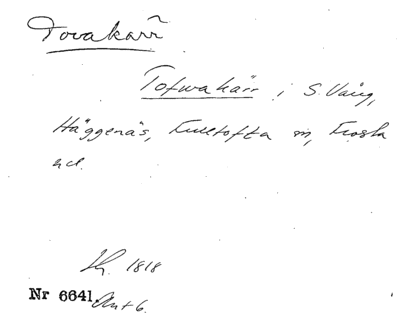 Tovakärr
Tofwakärr i S. Vång,
Häggenäs, Fulltofta m, Frosta
hd.
1818
Nr 6641. Ant 6.